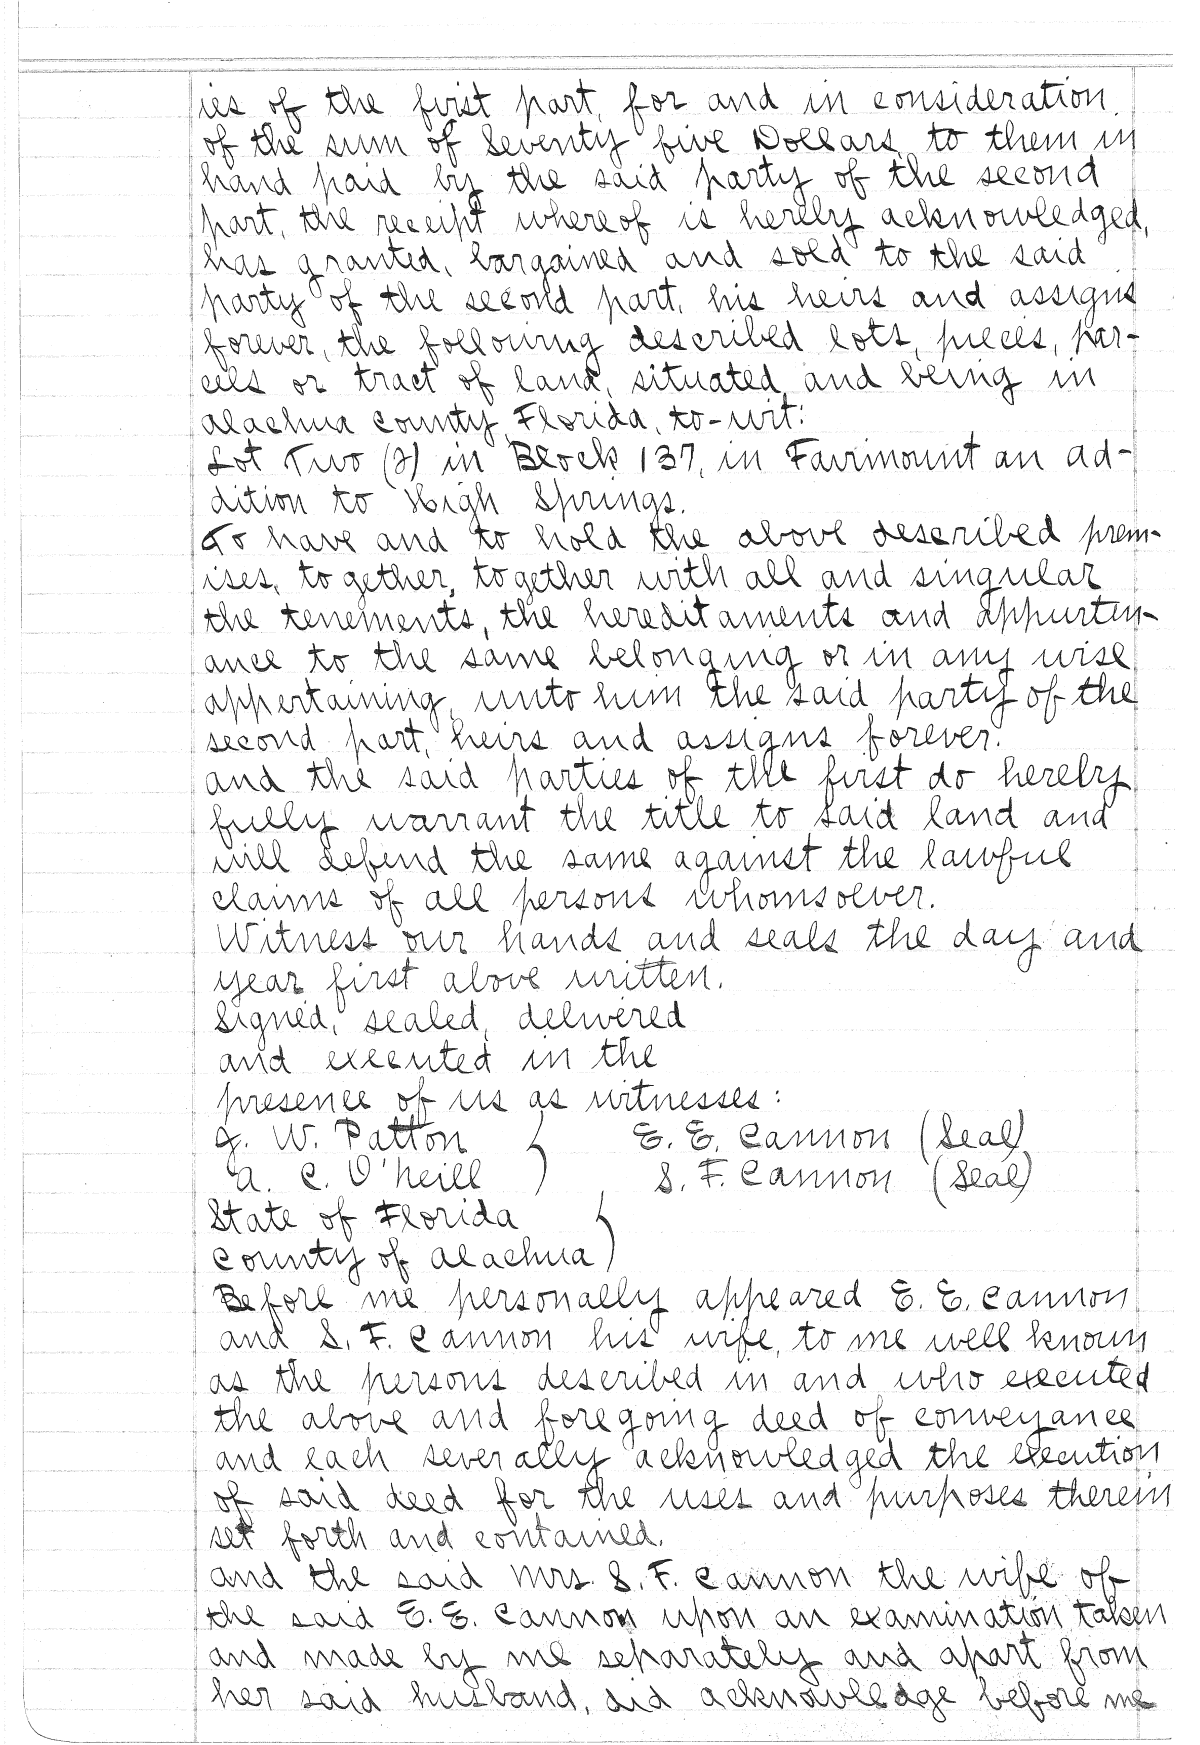 ies of the first part, for and in consideration
of the sum of Seventy five Dollars, to them in
hand paid by the said party of the second
part, the receipt whereof is hereby acknowledged,
has granted, bargained and sold to the said
party of the second part, his heirs and assigns
forever, the following described lots, pieces, par-
cels or tract of land, situated and being in
Alachua County, Florida, to-wit:
Lot Two (2) in Block 137, in Fairmount an ad-
dition to High Springs.
To have and to hold the above described prem-
ises, together, together with all and singular
the tenements, the hereditaments and appurten-
ance to the same belonging or in any wise
appertaining, unto him the said party of the
second part, heirs and assigns forever.
and the said parties of the first do hereby
fully warrant the title to said land and
will defend the same against the lawful
claims of all persons whomsoever.
Witness our hands and seals the day and
year first above written.
Signed, sealed, delivered
and executed in the
presence of us as witnesses:
J. W. Patton ) E. E. Cannon (Seal)
A. C. O'Neill ) S. F. Cannon (Seal)
State of Florida )
County of Alachua )
Before me personally appeared E. E. Cannon
and S. F. Cannon his wife, to me well known
as the persons described in and who executed
the above and foregoing deed of conveyance
and each severally acknowledged the execution
of said deed for the uses and purposes therein
set forth and contained.
and the said Mrs. S. F. Cannon the wife of
the said E. E. Cannon upon an examination taken
and made by me separately and apart from
her said husband, did acknowledge before me